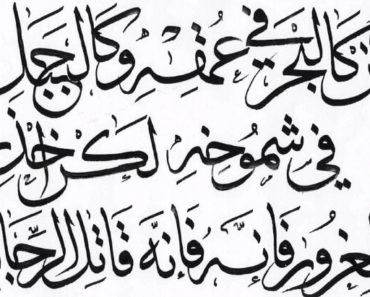 كَالبَحْرِ في عُمْقِهِ وَكَالجَبَلِ
في شُمُوخِهِ لَكن
لغرُور فَإنَّه فَإنَّه قَاتِل الرِّجَا